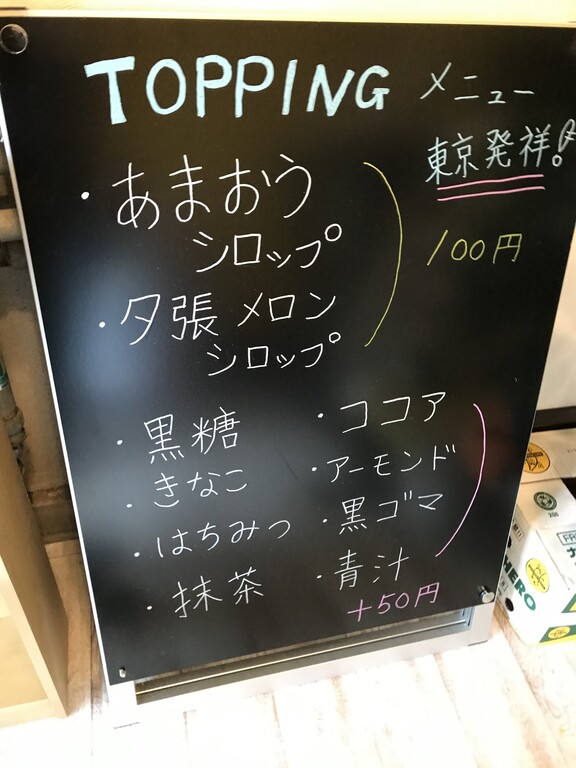 TOPPING メニュー
東京発祥!
・あまおう
シロップ
・夕張メロン
シロップ
100円
・黒糖
・きなこ
・はちみつ
・抹茶
・ココア
・アーモンド
・黒ゴマ
・青汁
+50円
HERO